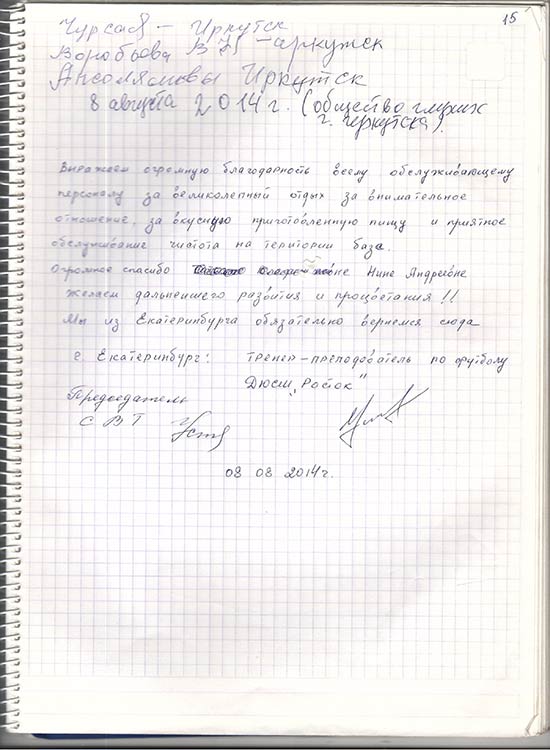 15
Иркутск
Воробьева В - Иркутск
Иркутск
8 августа 2014 г. (общество глухих
г. Иркутска).
Выражаем огромную благодарность всему обслуживающему
персоналу за великолепный отдых за внимательное
отношение, за вкусную приготовленную пищу и приятное
обслуживание чистота на територии база.
Огромное спасибо Нине Андреевне
желаем дальнейшего развития и процветания!!
Мы из Екатеринбурга обязательно вернемся сюда
г. Екатеринбург: тренер-преподователь по футболу
ДЮСШ "Росток"
Председатель
С В Т
08 08 2014г.